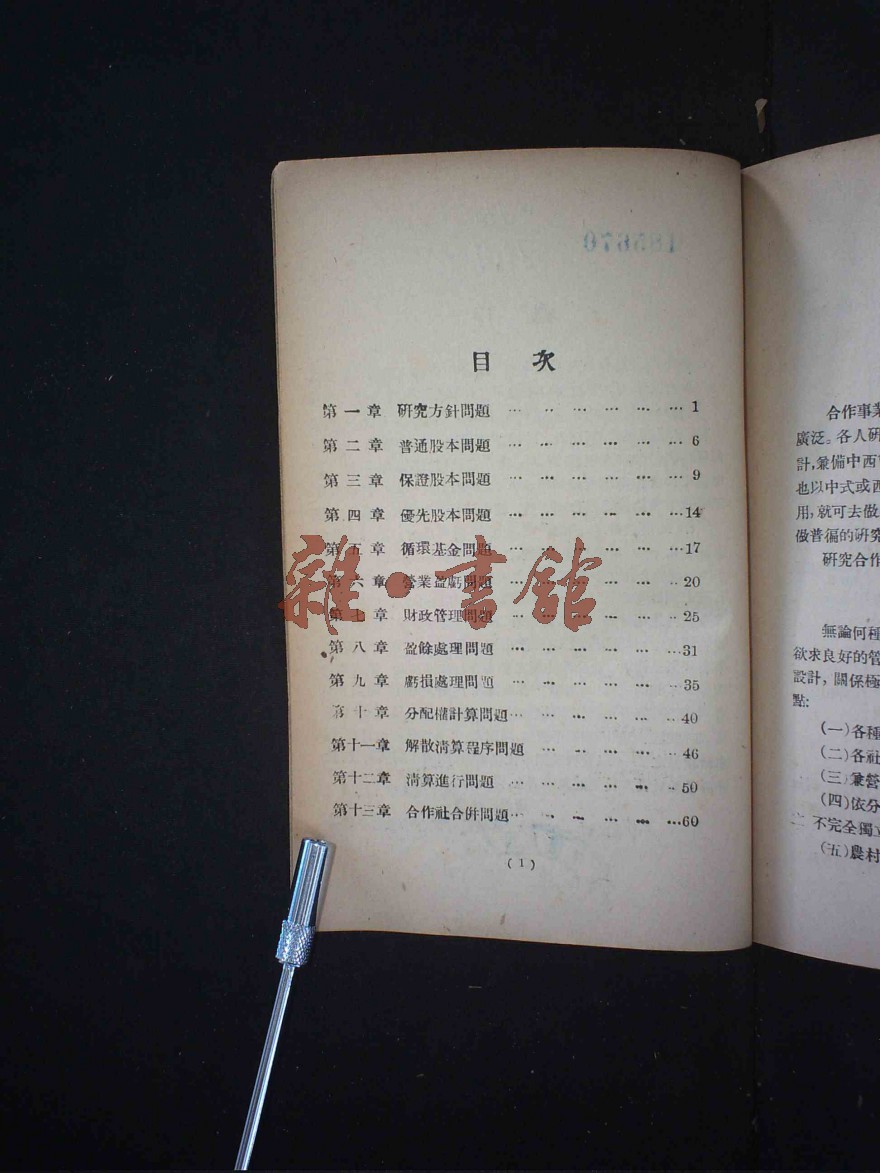 185670
目 次
第一章 研究方針問題 … ‥ … … … …1
第二章 普通股本問題 … … … … … … 6
第三章 保證股本問題 … … … … … … 9
第四章 優先股本問題 … … … … … …14
第五章 循環基金問題 … … … … … …17
第六章 營業盈虧問題 … … … … … … 20
第七章 財政管理問題 … … … … … … 25
第八章 盈餘處理問題 … … … … … …31
第九章 虧損處理問題 … … … … … …35
第十章 分配權計算問題… … … … … … 40
第十一章 解散清算程序問題 … … … … … 46
第十二章 清算進行問題 … … … … … … 50
第十三章 合作社合併問題… … … … … …60
(1)
雜·書館
合作事業
廣泛。各人研
計,兼備中西
也以中式或西
用,就可去做
做普徧的研究
研究合作
無論何種
欲求良好的管
設計,關係極
點:
(一)各種
(二)各社
(三)兼營
(四)依分
不完全獨立
(五)農村